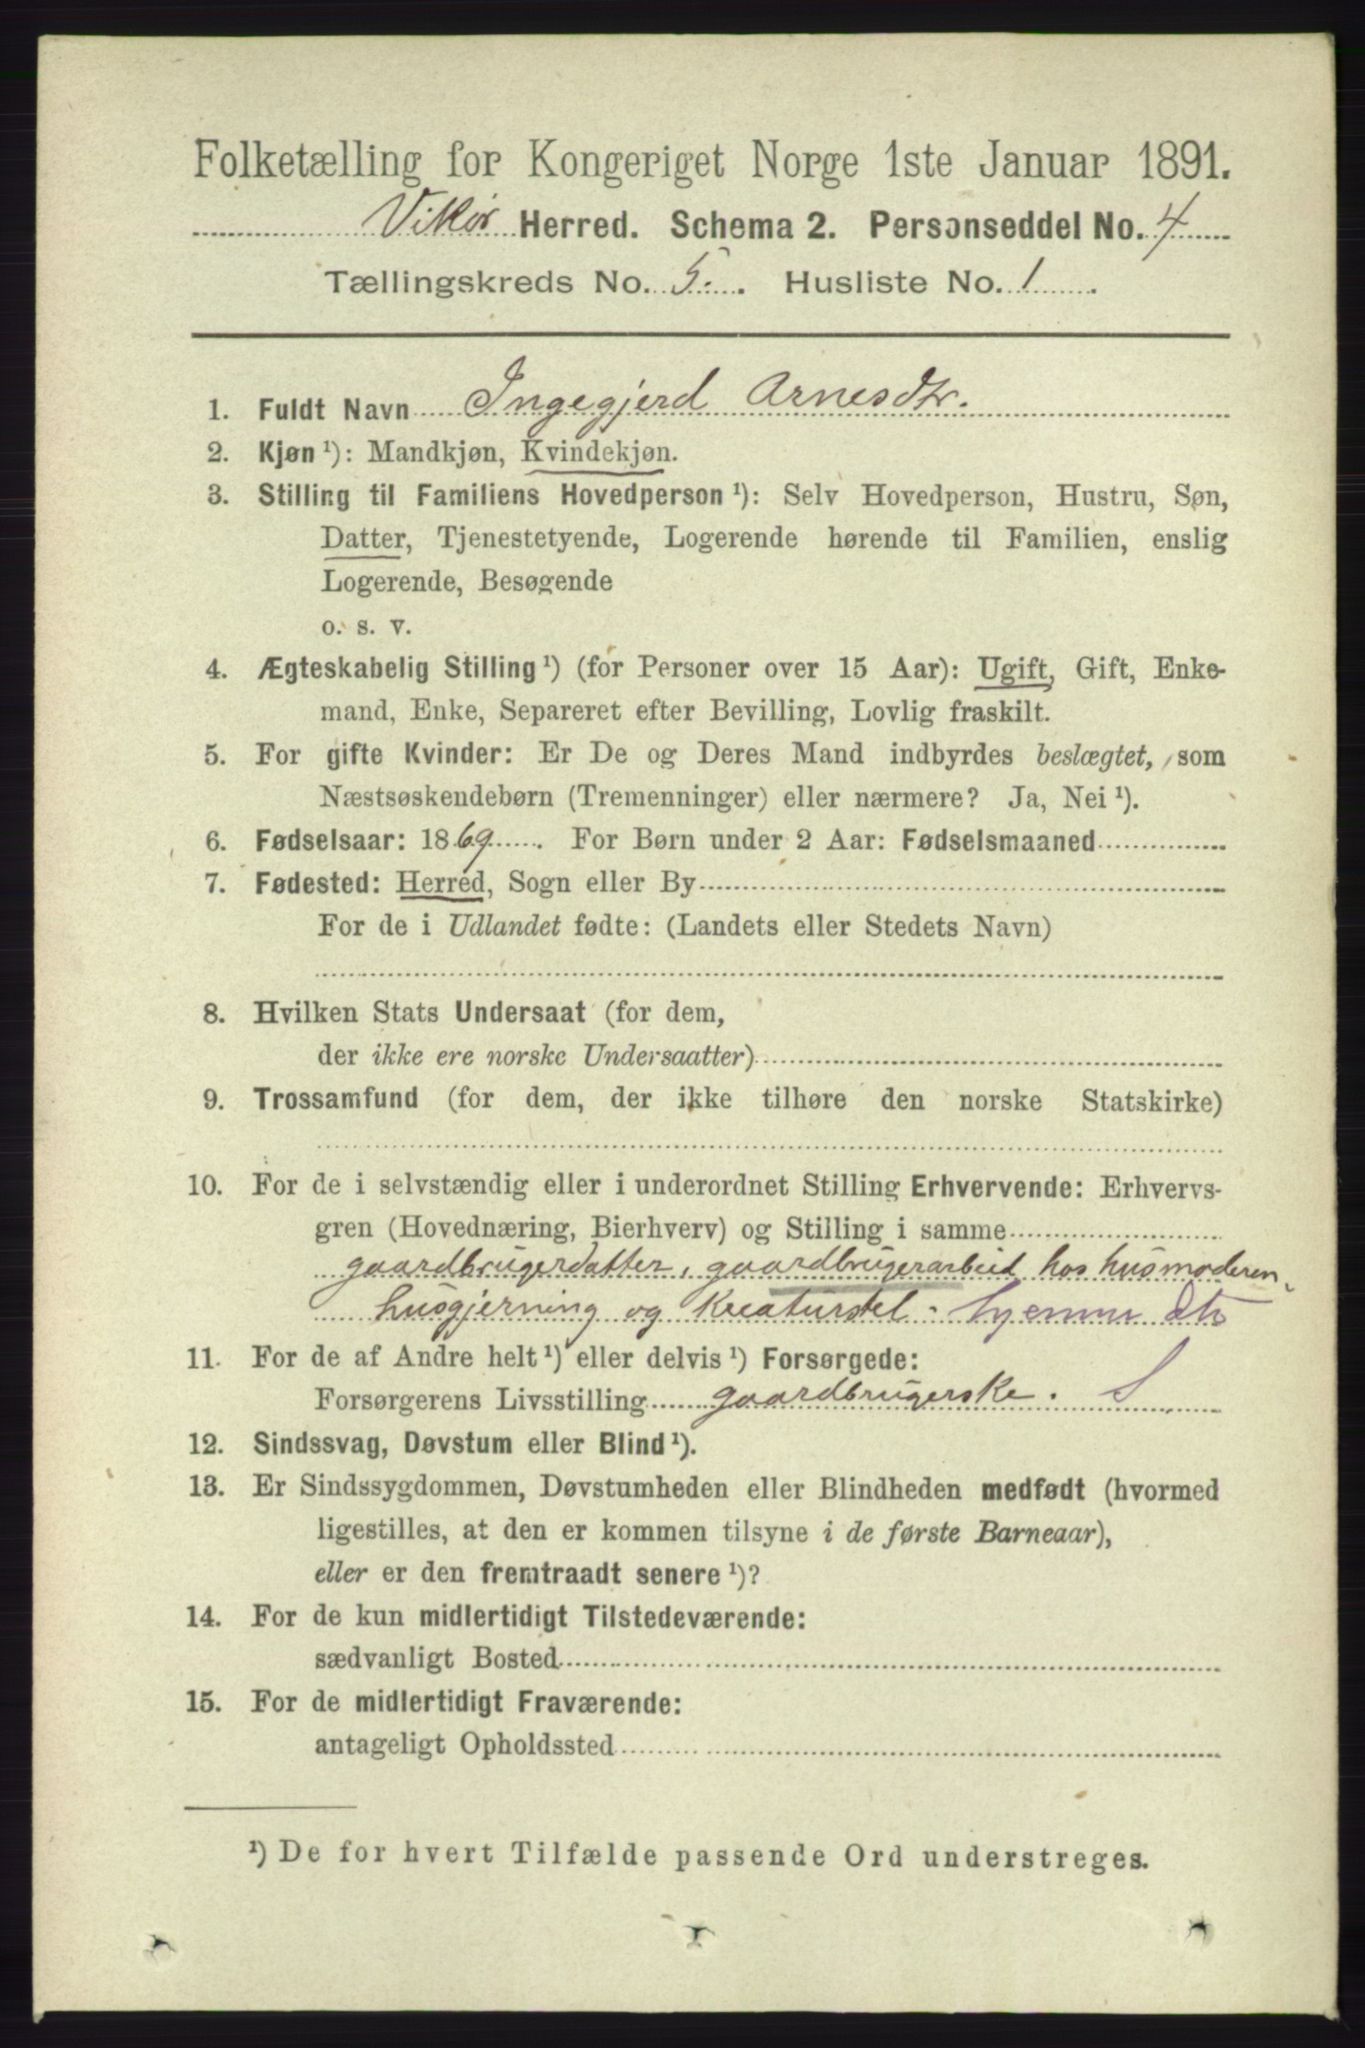 Folketælling for Kongeriget Norge 1ste Januar 1891.
Vikør Herred. Schema 2. Personseddel No. 4
Tællingskreds No. 5. Husliste No. 1
1. Fuldt Navn Ingegjerd Arnesdtr.
2. Kjøn ¹): Mandkjøn, Kvindekjøn.
3. Stilling til Familiens Hovedperson ¹): Selv Hovedperson, Hustru, Søn,
Datter, Tjenestetyende, Logerende hørende til Familien, enslig
Logerende, Besøgende
o. s. v.
4. Ægteskabelig Stilling ¹) (for Personer over 15 Aar): Ugift, Gift, Enke-
mand, Enke, Separeret efter Bevilling, Lovlig fraskilt.
5. For gifte Kvinder: Er De og Deres Mand indbyrdes beslægtet, som
Næstsøskendebørn (Tremenninger) eller nærmere? Ja, Nei ¹).
6. Fødselsaar: 1869. For Børn under 2 Aar: Fødselsmaaned
7. Fødested: Herred, Sogn eller By
For de i Udlandet fødte: (Landets eller Stedets Navn)
8. Hvilken Stats Undersaat (for dem,
der ikke ere norske Undersaatter)
9. Trossamfund (for dem, der ikke tilhøre den norske Statskirke)
10. For de i selvstændig eller i underordnet Stilling Erhvervende: Erhvervs-
gren (Hovednæring, Bierhverv) og Stilling i samme
gaardbrugerdatter, gaardbrugerarbeid hos husmoderen,
husgjerning og Kreaturstel - hjemmedtr
11. For de af Andre helt ¹) eller delvis ¹) Forsørgede:
Forsørgerens Livsstilling gaardbrugerske. S
12. Sindssvag, Døvstum eller Blind ¹).
13. Er Sindssygdommen, Døvstumheden eller Blindheden medfødt (hvormed
ligestilles, at den er kommen tilsyne i de første Barneaar),
eller er den fremtraadt senere ¹)?
14. For de kun midlertidigt Tilstedeværende:
sædvanligt Bosted
15. For de midlertidigt Fraværende:
antageligt Opholdssted
¹) De for hvert Tilfælde passende Ord understreges.